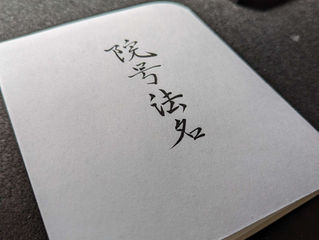 院号法名